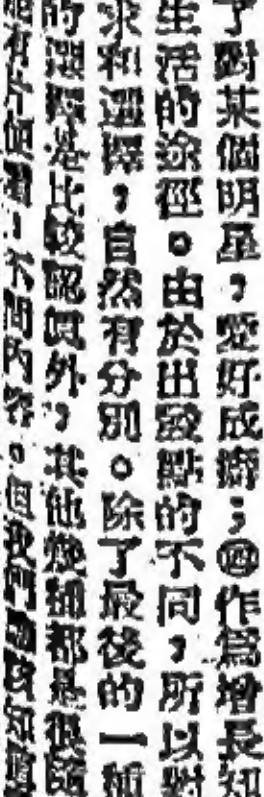 了對某個明星，愛好成癖；㊃作爲增長知
生活的途徑。由於出發點的不同，所以對
求和選擇，自然有分別。除了最後的一種
的選擇是比較認眞外，其他幾種都是很隨
有片便看，不問內容。但我們應該知道